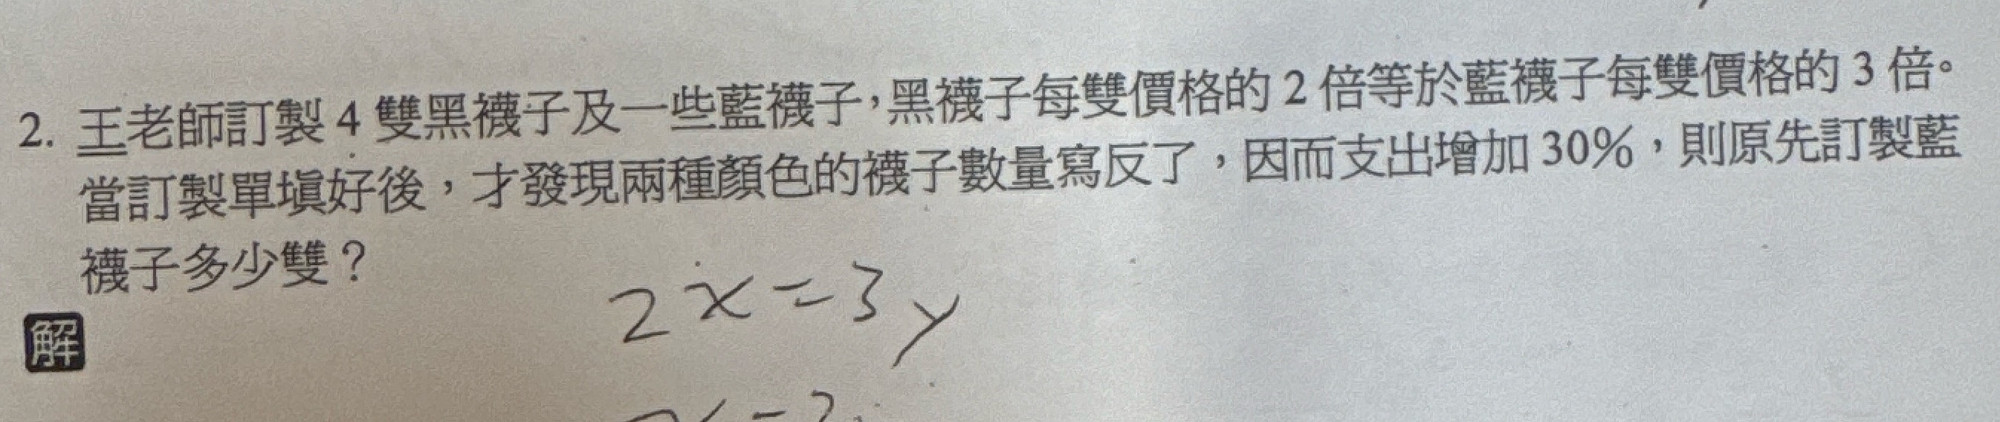 2. 王老師訂製 4 雙黑襪子及一些藍襪子，黑襪子每雙價格的 2 倍等於藍襪子每雙價格的 3 倍。
當訂製單填好後，才發現兩種顏色的襪子數量寫反了，因而支出增加 30%，則原先訂製藍
襪子多少雙？
2x=3y
解